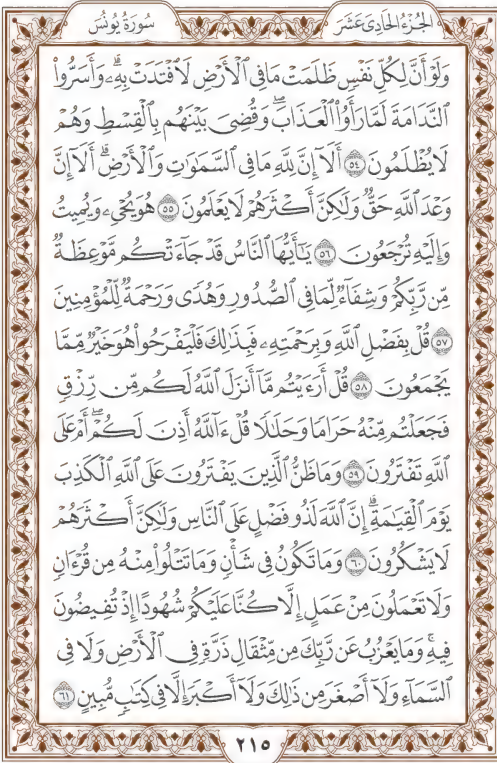 الجُزْءُ الحَادِي عَشَرَ
سُورَةُ يُونُسَ
وَلَوْ أَنَّ لِكُلِّ نَفْسٖ ظَلَمَتْ مَا فِي ٱلْأَرْضِ لَٱفْتَدَتْ بِهِۦۗ وَأَسَرُّواْ
ٱلنَّدَامَةَ لَمَّا رَأَوُاْ ٱلْعَذَابَۖ وَقُضِيَ بَيْنَهُم بِٱلْقِسْطِ وَهُمْ
لَا يُظْلَمُونَ ٥٤ أَلَآ إِنَّ لِلَّهِ مَا فِي ٱلسَّمَٰوَٰتِ وَٱلْأَرْضِۗ أَلَآ إِنَّ
وَعْدَ ٱللَّهِ حَقّٞ وَلَٰكِنَّ أَكْثَرَهُمْ لَا يَعْلَمُونَ ٥٥ هُوَ يُحْيِۦ وَيُمِيتُ
وَإِلَيْهِ تُرْجَعُونَ ٥٦ يَٰٓأَيُّهَا ٱلنَّاسُ قَدْ جَآءَتْكُم مَّوْعِظَةٞ
مِّن رَّبِّكُمْ وَشِفَآءٞ لِّمَا فِي ٱلصُّدُورِ وَهُدٗى وَرَحْمَةٞ لِّلْمُؤْمِنِينَ
٥٧ قُلْ بِفَضْلِ ٱللَّهِ وَبِرَحْمَتِهِۦ فَبِذَٰلِكَ فَلْيَفْرَحُواْ هُوَ خَيْرٞ مِّمَّا
يَجْمَعُونَ ٥٨ قُلْ أَرَءَيْتُم مَّآ أَنزَلَ ٱللَّهُ لَكُم مِّن رِّزْقٖ
فَجَعَلْتُم مِّنْهُ حَرَامٗا وَحَلَٰلٗا قُلْ ءَآللَّهُ أَذِنَ لَكُمْۖ أَمْ عَلَى
ٱللَّهِ تَفْتَرُونَ ٥٩ وَمَا ظَنُّ ٱلَّذِينَ يَفْتَرُونَ عَلَى ٱللَّهِ ٱلْكَذِبَ
يَوْمَ ٱلْقِيَٰمَةِۗ إِنَّ ٱللَّهَ لَذُو فَضْلٍ عَلَى ٱلنَّاسِ وَلَٰكِنَّ أَكْثَرَهُمْ
لَا يَشْكُرُونَ ٦٠ وَمَا تَكُونُ فِي شَأْنٖ وَمَا تَتْلُواْ مِنْهُ مِن قُرْءَانٖ
وَلَا تَعْمَلُونَ مِنْ عَمَلٍ إِلَّا كُنَّا عَلَيْكُمْ شُهُودًا إِذْ تُفِيضُونَ
فِيهِۚ وَمَا يَعْزُبُ عَن رَّبِّكَ مِن مِّثْقَالِ ذَرَّةٖ فِي ٱلْأَرْضِ وَلَا فِي
ٱلسَّمَآءِ وَلَآ أَصْغَرَ مِن ذَٰلِكَ وَلَآ أَكْبَرَ إِلَّا فِي كِتَٰبٖ مُّبِينٍ ٦١
٢١٥